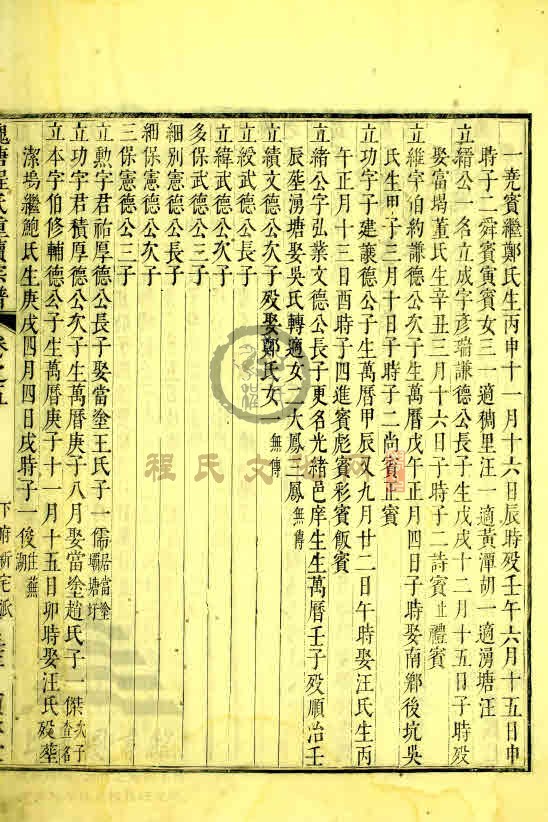 一堯賓繼鄭氏生丙申十一月十六日辰時殁壬午六月十五日申
時子二舜賓寅賓女三一適稠里汪一適黃潭胡一適湧塘汪
立縉公一名立成字彥瑞謙德公長子生戊戌十二月十五日子時殁
娶富堨董氏生辛丑三月十六日子時子二詩賓禮賓
立維字伯約謙德公次子生萬曆戊午正月四日子時娶南鄉後坑吳
氏生甲子三月十日子時子二尚賓正賓
立功字子建讓德公子生萬曆甲辰又九月廿二日午時娶汪氏生丙
午正月十三日酉時子四進賓彪賓彩賓飯賓
立緒公字弘業文德公長子更名光緒邑庠生生萬曆壬子殁順治壬
辰塟湧塘娶吳氏轉適女二大鳳三鳳無傳
立績文德公次子殁娶鄭氏女一無傳
立綬武德公長子
立緯武德公次子
多保武德公三子
細別憲德公長子
細保憲德公次子
三保憲德公三子
立勲字君祐厚德公長子娶當塗王氏子一儒居當塗
塘圩
立功字君積厚德公次子生萬曆庚子八月娶當塗趙氏子一傑次子
查名
立本字伯修輔德公子生萬曆庚子十一月十五日卯時娶汪氏殁塟
潔塢繼鮑氏生庚戌四月四日戌時子一後住蕪
湖
槐塘程氏重續宗譜
卷之五
下府新宅派